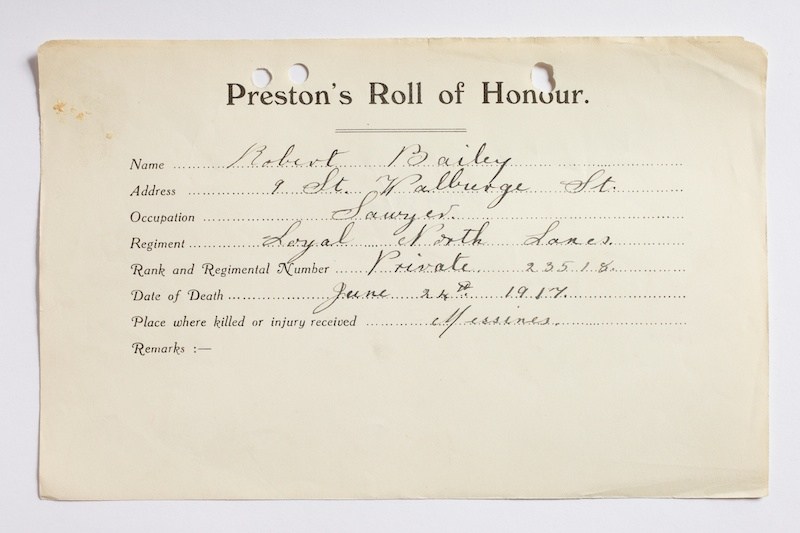 Preston's Roll of Honour.
Name Robert Bailey
Address 9 St. Walburge St.
Occupation Sawyer.
Regiment Loyal North Lancs.
Rank and Regimental Number Private 23518.
Date of Death June 24th 1917.
Place where killed or injury received Messines.
Remarks :—